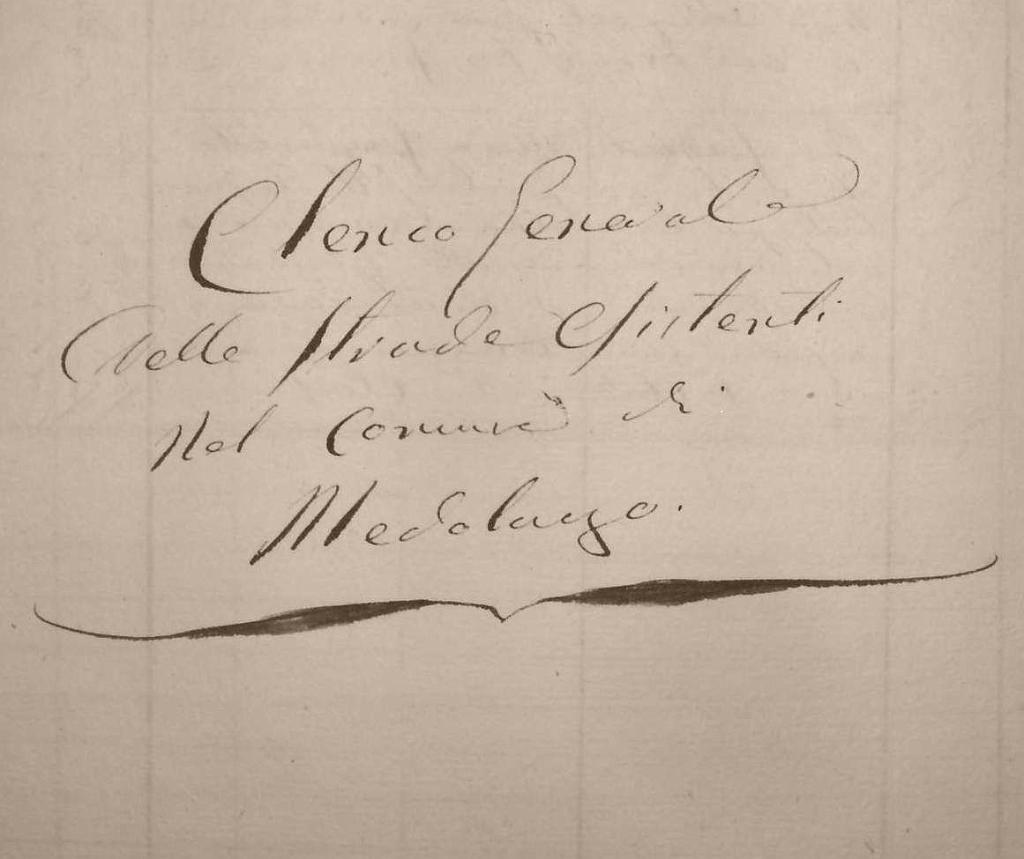 Elenco Generale
Delle Strade Esistenti
Nel Comune di
Medolago.